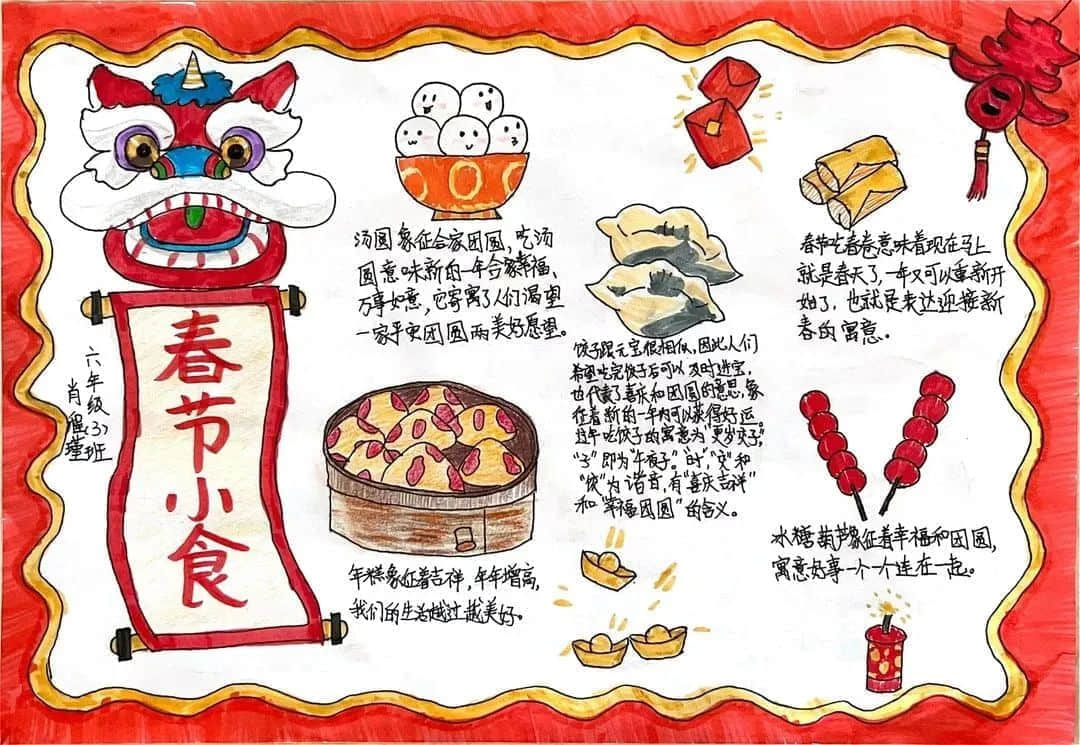 春节小食
六年级(3)班
肖僖瑾
汤圆象征合家团圆，吃汤
圆意味新的一年合家幸福，
万事如意，它寄寓了人们渴望
一家平安团圆两美好愿望。
年糕象征着吉祥，年年增高，
我们的生活越过越美好。
饺子跟元宝很相似，因此人们
希望吃完饺子后可以及时进宝，
也代表了喜庆和团圆的意思，象
征着新的一年内可以获得好运。
过年吃饺子的寓意为“更岁交子”，
“子”即为“午夜子”。时“，“交”和
“饺”为谐音，有“喜庆吉祥”
和“幸福团圆”的含义。
春节吃春卷意味着现在马上
就是春天了，一年又可以重新开
始了，也就是来达迎接新
春的寓意。
冰糖葫芦象征着幸福和团圆，
寓意好事一个一个连在一起。